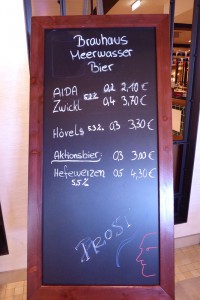 Brauhaus
Meerwasser
Bier
AIDA 0,2 2,10 €
Zwickl 5,2% 0,4 3,70 €
Hövels 5,5%. 0,3 3,30 €
Aktionsbier: 0,3 3.00 €
Hefeweizen 0,5 4,30 €
5.5%
PROST